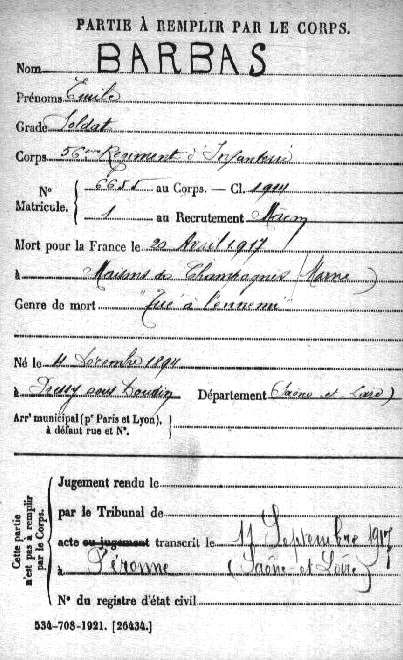 PARTIE À REMPLIR PAR LE CORPS.
Nom BARBAS
Prénoms Emile
Grade Soldat
Corps 56ème Régiment d'Infanterie
N° Matricule. 6655 au Corps. — Cl. 1914
1 au Recrutement Macon
Mort pour la France le 22 Avril 1917
à Maisons de Champagne (Marne)
Genre de mort "Tué à l'ennemi"
Né le 4 Novembre 1894
à Dompierre Département (Saône et Loire)
Arrt municipal (pr Paris et Lyon),
à défaut rue et N°.
Cette partie n'est pas à remplir par le Corps.
Jugement rendu le
par le Tribunal de
acte ou jugement transcrit le 11 Septembre 1917
à Péronne (Saône-et-Loire)
N° du registre d'état civil
534-708-1921. [26434.]